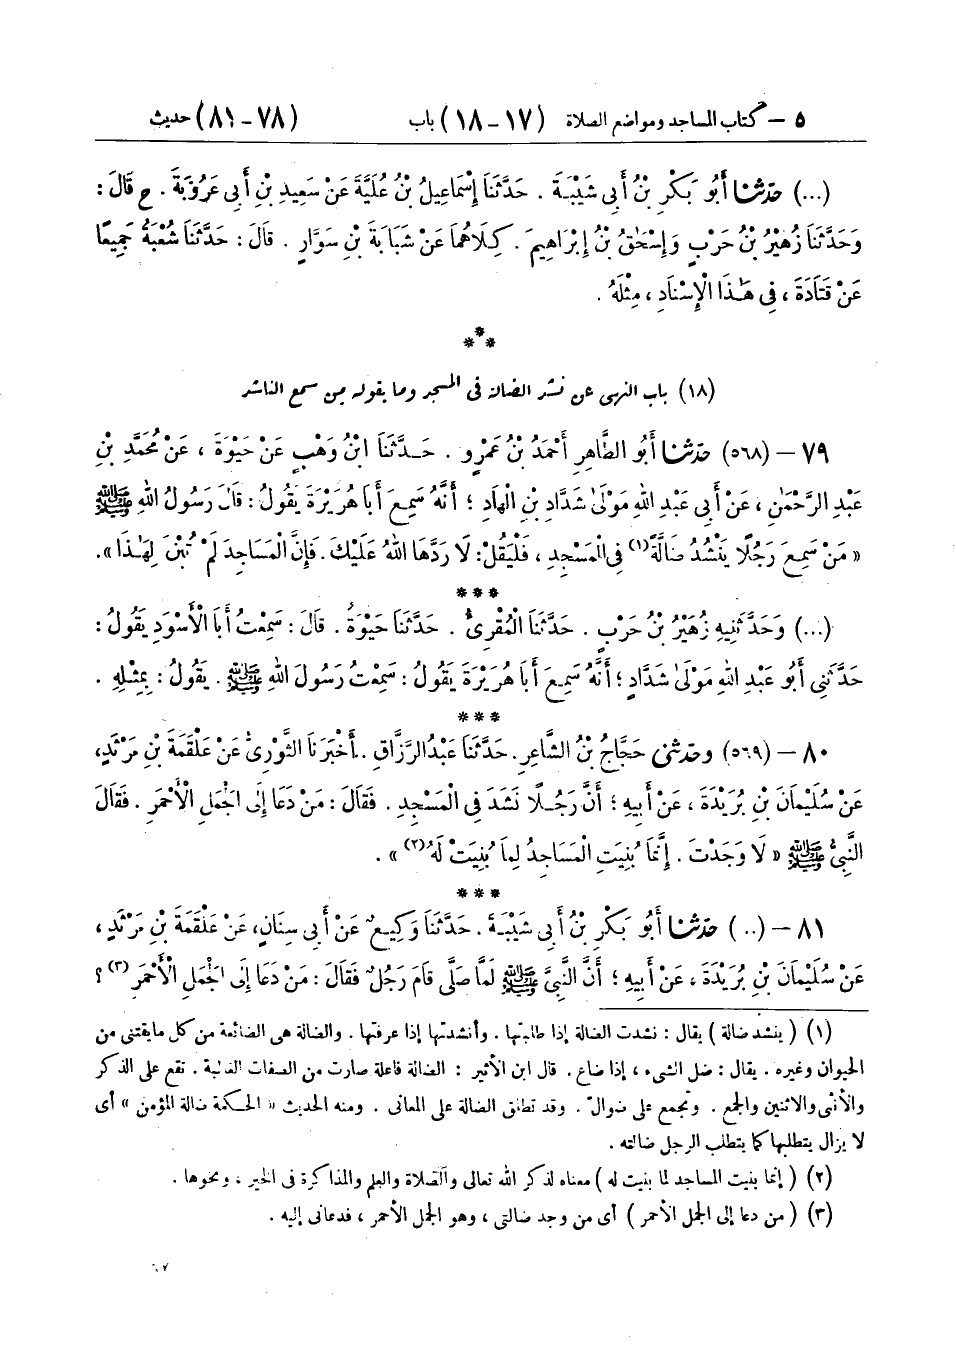 ٥ – كتاب المساجد ومواضع الصلاة (١٧ – ١٨) باب (٧٨ – ٨١) حديث
(...) حَدَّثَنَا أَبُو بَكْرِ بْنُ أَبِي شَيْبَةَ . حَدَّثَنَا إِسْمَاعِيلُ بْنُ عُلَيَّةَ عَنْ سَعِيدِ بْنِ أَبِي عَرُوبَةَ . ح قَالَ :
وَحَدَّثَنَا زُهَيْرُ بْنُ حَرْبٍ وَإِسْحَقُ بْنُ إِبْرَاهِيمَ . كِلَاهُمَا عَنْ شَبَابَةَ بْنِ سَوَّارٍ . قَالَ : حَدَّثَنَا شُعْبَةُ جَمِيعًا
عَنْ قَتَادَةَ ، فِي هَذَا الْإِسْنَادِ ، مِثْلَهُ .
***
(١٨) باب النهي عن نشد الضالة في المسجد وما يقوله من سمع الناشد
٧٩ – (٥٦٨) حَدَّثَنَا أَبُو الطَّاهِرِ أَحْمَدُ بْنُ عَمْرٍو . حَدَّثَنَا ابْنُ وَهْبٍ عَنْ حَيْوَةَ ، عَنْ مُحَمَّدِ بْنِ
عَبْدِ الرَّحْمَنِ ، عَنْ أَبِي عَبْدِ اللهِ مَوْلَى شَدَّادِ بْنِ الْهَادِ ؛ أَنَّهُ سَمِعَ أَبَا هُرَيْرَةَ يَقُولُ : قَالَ رَسُولُ اللهِ ﷺ
« مَنْ سَمِعَ رَجُلًا يَنْشُدُ ضَالَّةً(١) فِي الْمَسْجِدِ ، فَلْيَقُلْ : لَا رَدَّهَا اللهُ عَلَيْكَ . فَإِنَّ الْمَسَاجِدَ لَمْ تُبْنَ لِهَذَا ».
***
(...) وَحَدَّثَنِيهِ زُهَيْرُ بْنُ حَرْبٍ . حَدَّثَنَا الْمُقْرِئُ . حَدَّثَنَا حَيْوَةُ . قَالَ : سَمِعْتُ أَبَا الْأَسْوَدِ يَقُولُ :
حَدَّثَنِي أَبُو عَبْدِ اللهِ مَوْلَى شَدَّادٍ ؛ أَنَّهُ سَمِعَ أَبَا هُرَيْرَةَ يَقُولُ : سَمِعْتُ رَسُولَ اللهِ ﷺ . يَقُولُ : بِمِثْلِهِ .
***
٨٠ – (٥٦٩) وحَدَّثَنِي حَجَّاجُ بْنُ الشَّاعِرِ . حَدَّثَنَا عَبْدُ الرَّزَّاقِ . أَخْبَرَنَا الثَّوْرِيُّ عَنْ عَلْقَمَةَ بْنِ مَرْثَدٍ ،
عَنْ سُلَيْمَانَ بْنِ بُرَيْدَةَ ، عَنْ أَبِيهِ ؛ أَنَّ رَجُلًا نَشَدَ فِي الْمَسْجِدِ . فَقَالَ : مَنْ دَعَا إِلَى الْجَمَلِ الْأَحْمَرِ . فَقَالَ
النَّبِيُّ ﷺ « لَا وَجَدْتَ . إِنَّمَا بُنِيَتِ الْمَسَاجِدُ لِمَا بُنِيَتْ لَهُ(٢) » .
***
٨١ – (..) حَدَّثَنَا أَبُو بَكْرِ بْنُ أَبِي شَيْبَةَ . حَدَّثَنَا وَكِيعٌ عَنْ أَبِي سِنَانٍ ، عَنْ عَلْقَمَةَ بْنِ مَرْثَدٍ ،
عَنْ سُلَيْمَانَ بْنِ بُرَيْدَةَ ، عَنْ أَبِيهِ ؛ أَنَّ النَّبِيَّ ﷺ لَمَّا صَلَّى قَامَ رَجُلٌ فَقَالَ : مَنْ دَعَا إِلَى الْجَمَلِ الْأَحْمَرِ (٣) ؟
(١) ( ينشد ضالة ) يقال : نشدت الضالة إذا طلبتها . وأنشدتها إذا عرفتها . والضالة هى الضائعة من كل ما يقتنى من
الحيوان وغيره . يقال : ضل الشىء ، إذا ضاع . قال ابن الأثير : الضالة فاعلة صارت من الصفات الغالبة . تقع على الذكر
والأنثى والاثنين والجمع . وتجمع على ضوالّ . وقد تطلق الضالة على المعانى . ومنه الحديث « الحكمة ضالة المؤمن » أى
لا يزال يتطلبها كما يتطلب الرجل ضالته .
(٢) ( إنما بنيت المساجد لما بنيت له ) معناه لذكر الله تعالى والصلاة والعلم والمذاكرة فى الخير ، ونحوها .
(٣) ( من دعا إلى الجمل الأحمر ) أى من وجد ضالتى ، وهو الجمل الأحمر ، فدعانى إليه .